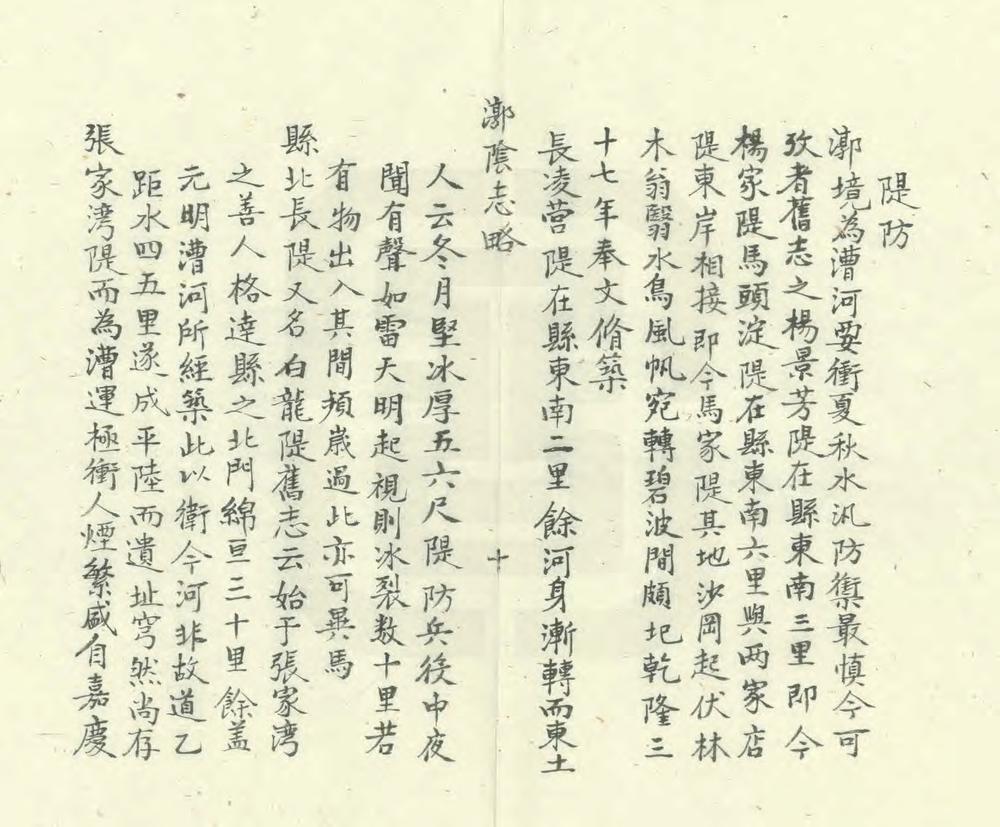 隄防
漷境為漕河要衝夏秋水汎防禦最慎今可
攷者舊志之楊景芳隄在縣東南三里即今
楊家隄馬頭淀隄在縣東南六里與两家店
隄東岸相接即今馬家隄其地沙岡起伏林
木翁翳水鳥風帆宛轉碧波間頗圮乾隆三
十七年奉文脩築
長凌营隄在縣東南二里餘河身漸轉而東土
漷陰志略
十
人云冬月堅冰厚五六尺隄防兵役中夜
聞有聲如雷天明起視則冰裂数十里若
有物出入其間頻歲過此亦可異焉
縣北長隄又名白龍隄舊志云始于張家湾
之善人格達縣之北門綿亘三十里餘盖
元明漕河所經築此以衛今河非故道乙
距水四五里遂成平陸而遺址穹然尚存
張家湾隄而為漕運極衝人煙繁盛自嘉慶